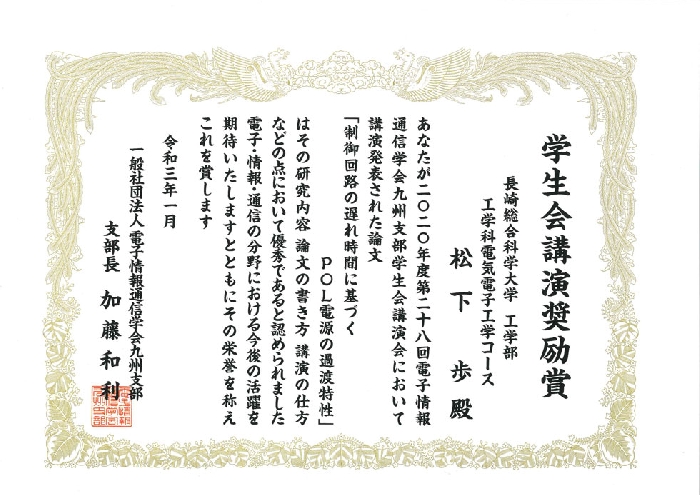 学生会講演奨励賞
長崎総合科学大学 工学部
工学科電気電子工学コース
松下 歩 殿
あなたが二〇二〇年度第二十八回電子情報
通信学会九州支部学生会講演会において
講演発表された論文
「制御回路の遅れ時間に基づく
POL電源の過渡特性」
はその研究内容 論文の書き方 講演の仕方
などの点において優秀であると認められました
電子・情報・通信の分野における今後の活躍を
期待いたしますとともにその栄誉を称え
これを賞します
令和三年一月
一般社団法人電子情報通信学会九州支部
支部長 加藤和利